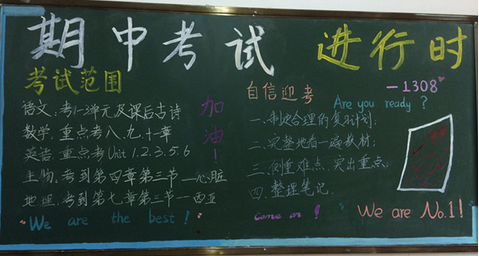 期中考试 进行时
考试范围
语文:考1-3单元及课后古诗
数学:重点考八、九、十章
英语:重点考Unit 1.2.3.5.6
生物:考到第四章第三节——心脏
地理:考到第七章第三节——西亚
"We are the best!"
加油!
自信迎考
-1308
Are you ready?
一.制定合理的复习计划.
二.完整地看一遍教材.
三.侧重难点,突出重点.
四.整理笔记.
Come on!
We are No.1!